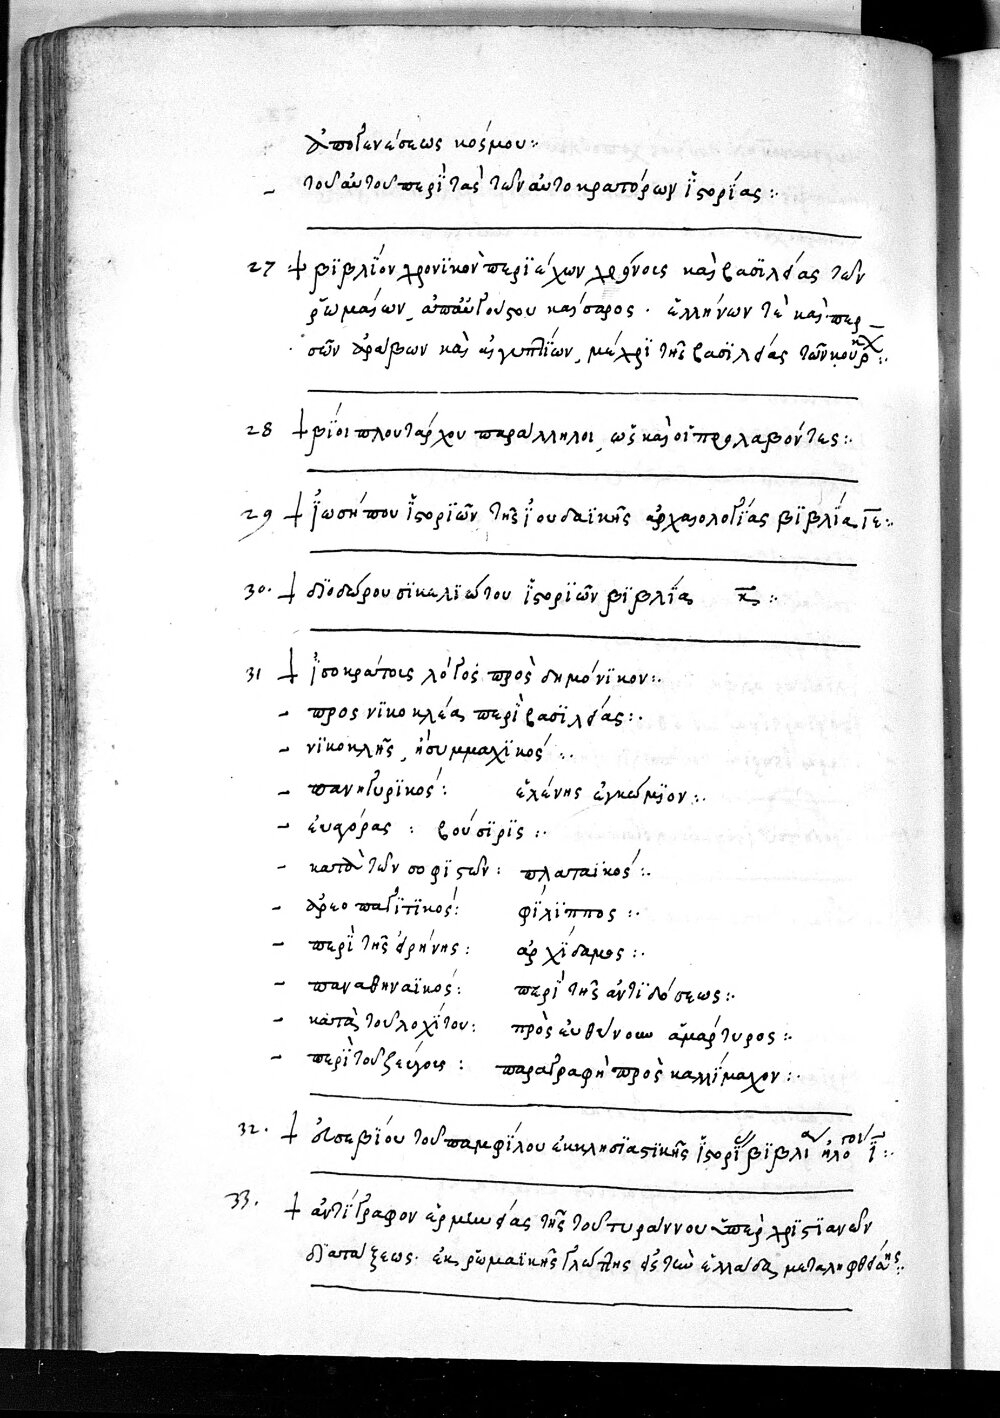 ἀπὸ γενέσεως κόσμου:·
- τοῦ αὐτοῦ περὶ τὰς τῶν αὐτοκρατόρων ἱστορίας:·
27 + βϊβλΐον χρονϊκὸν περιέχων χρόνοις καὶ βασϊλείας τῶν
ῥωμαίων, ἀπὸ αὐγούστου καίσαρος · ἑλλήνων τὲ καὶ περ-
σῶν ἀράβων καὶ αἰγυπτΐων, μέχρϊ τῆς βασϊλείας τῶν
28 + βΐοι πλουτάρχου παράλληλοι, ὡς καὶ οἱ προλαβόντες:·
29 + ἰωσήπου ἱστορϊῶν τῆς ἰουδαϊκῆς ἀρχαιολογΐας βϊβλΐα ιε:·
30· + δϊοδώρου σϊκελϊώτου ἱστορϊῶν βϊβλΐα κς:·
31 + ἰσοκράτοις λόγος πρὸς δημόνϊκον:·
- προς νϊκοκλέα περὶ βασϊλείας:·
- νϊκοκλῆς, ἢ συμμαχϊκός:·
- πανηγυρϊκός: ἑλένης ἐγκώμϊον:·
- εὐαγόρας: βούσϊρϊς:·
- κατὰ τῶν σοφϊστῶν: πλαταϊκός:·
- ἀρεοπαγϊτϊκός: φΐλϊππος:·
- περὶ τῆς εἰρήνης: ἀρχΐδαμος:·
- παναθηναϊκός: περὶ τῆς ἀντϊδόσεως:·
- κατὰ τοῦ λοχΐτου: πρὸς εὐθύνουν ἀμάρτυρος:·
- περὶ τοῦ ζεύγοις: παραγραφὴ πρὸς καλλΐμαχον:·
32· + εὐσεβΐου τοῦ παμφΐλου ἐκκλησϊαστϊκῆς ἱστορϊ βϊβλι ὅλον ῑ:·
33· + ἀντΐγραφον ἑρμηνείας τῆς τοῦ τυράννου ὑπὲρ χρϊστϊανῶν
δϊατάξεως· ἐκ ῥωμαϊκῆς γλώττης εἰς τὴν ἑλλάδα μεταληφθείσης:·